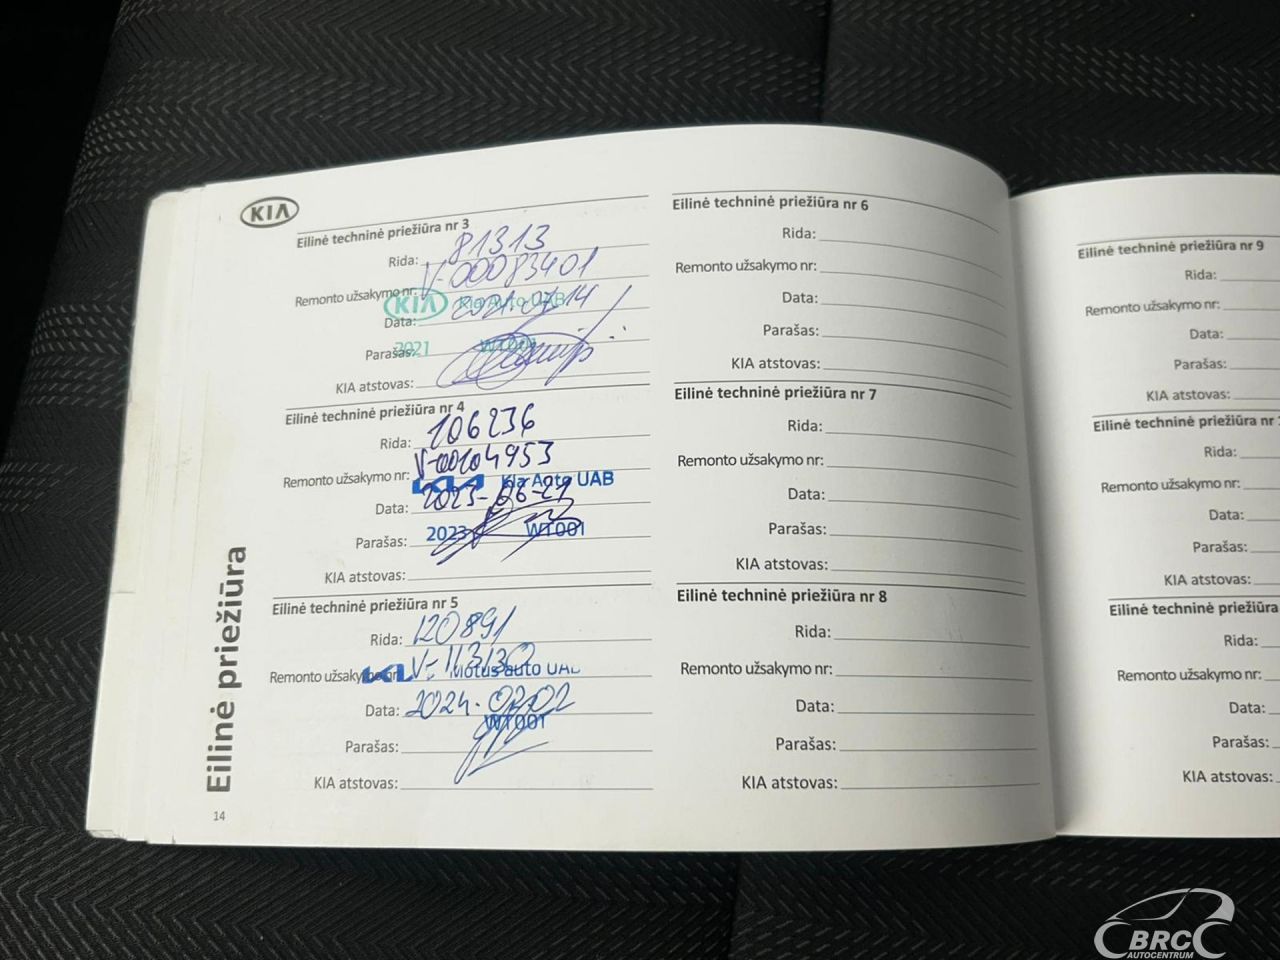 KIA
Eilinė techninė priežiūra nr 3
Rida: 81313
Remonto užsakymo nr: V-00083401
KIA Kia Auto UAB
Data: 2021.07.14
Parašas:
2021 WT001
KIA atstovas:
Eilinė techninė priežiūra nr 4
Rida: 106236
Remonto užsakymo nr: V-00104953
KIA Kia Auto UAB
Data: 2023-06-21
2023 WT001
Parašas:
KIA atstovas:
Eilinė techninė priežiūra nr 5
Rida: 120891
Remonto užsakymo nr: V-113130
KIA Motus auto UAB
Data: 2024.02.02
WT001
Parašas:
KIA atstovas:
Eilinė priežiūra
14
Eilinė techninė priežiūra nr 6
Rida:
Remonto užsakymo nr:
Data:
Parašas:
KIA atstovas:
Eilinė techninė priežiūra nr 7
Rida:
Remonto užsakymo nr:
Data:
Parašas:
KIA atstovas:
Eilinė techninė priežiūra nr 8
Rida:
Remonto užsakymo nr:
Data:
Parašas:
KIA atstovas:
Eilinė techninė priežiūra nr 9
Rida:
Remonto užsakymo nr:
Data:
Parašas:
KIA atstovas:
Eilinė techninė priežiūra nr
Rida:
Remonto užsakymo nr:
Data:
Parašas:
KIA atstovas:
Eilinė techninė priežiūra
Rida:
Remonto užsakymo nr:
Data:
Parašas:
KIA atstovas:
BRC
AUTOCENTRUM